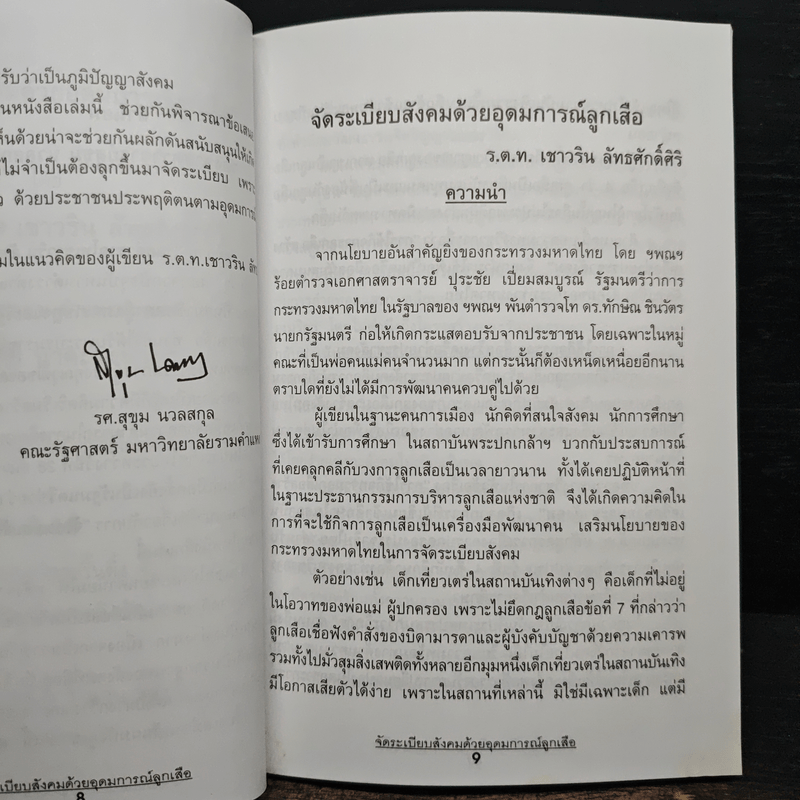 รับว่าเป็นภูมิปัญญาสังคม
นหนังสือเล่มนี้ ช่วยกันพิจารณาข้อเสนอ
ห็นด้วยน่าจะช่วยกันผลักดันสนับสนุนให้เกิ
ไม่จำเป็นต้องลุกขึ้นมาจัดระเบียบ เพรา
ว ด้วยประชาชนประพฤติตนตามอุดมกา
มในแนวคิดของผู้เขียน ร.ต.ท.เชาวริน ลัท
รศ.สุขุม นวลสกุล
คณะรัฐศาสตร์ มหาวิทยาลัยรามคำแห
เบียบสังคมด้วยอุดมการณ์ลูกเสือ
8
จัดระเบียบสังคมด้วยอุดมการณ์ลูกเสือ
ร.ต.ท. เชาวริน ลัทธศักดิ์ศิริ
ความนำ
จากนโยบายอันสำคัญยิ่งของกระทรวงมหาดไทย โดย ฯพณฯ
ร้อยตำรวจเอกศาสตราจารย์ ปุระชัย เปี่ยมสมบูรณ์ รัฐมนตรีว่าการ
กระทรวงมหาดไทย ในรัฐบาลของ ฯพณฯ พันตำรวจโท ดร.ทักษิณ ชินวัตร
นายกรัฐมนตรี ก่อให้เกิดกระแสตอบรับจากประชาชน โดยเฉพาะในหมู่
คณะที่เป็นพ่อคนแม่คนจำนวนมาก แต่กระนั้นก็ต้องเหน็ดเหนื่อยอีกนาน
ตราบใดที่ยังไม่ได้มีการพัฒนาคนควบคู่ไปด้วย
ผู้เขียนในฐานะคนการเมือง นักคิดที่สนใจสังคม นักการศึกษา
ซึ่งได้เข้ารับการศึกษา ในสถาบันพระปกเกล้าฯ บวกกับประสบการณ์
ที่เคยคลุกคลีกับวงการลูกเสือเป็นเวลายาวนาน ทั้งได้เคยปฏิบัติหน้าที่
ในฐานะประธานกรรมการบริหารลูกเสือแห่งชาติ จึงได้เกิดความคิดใน
การที่จะใช้กิจการลูกเสือเป็นเครื่องมือพัฒนาคน เสริมนโยบายของ
กระทรวงมหาดไทยในการจัดระเบียบสังคม
ตัวอย่างเช่น เด็กเที่ยวเตร่ในสถานบันเทิงต่างๆ คือเด็กที่ไม่อยู่
ในโอวาทของพ่อแม่ ผู้ปกครอง เพราะไม่ยึดกฎลูกเสือข้อที่ 7 ที่กล่าวว่า
ลูกเสือเชื่อฟังคำสั่งของบิดามารดาและผู้บังคับบัญชาด้วยความเคารพ
รวมทั้งไปมั่วสุมสิ่งเสพติดทั้งหลายอีกมุมหนึ่งเด็กเที่ยวเตร่ในสถานบันเทิง
มีโอกาสเสียตัวได้ง่าย เพราะในสถานที่เหล่านี้ มิใช่มีเฉพาะเด็ก แต่มี
จัดระเบียบสังคมด้วยอุดมการณ์ลูกเสือ
9